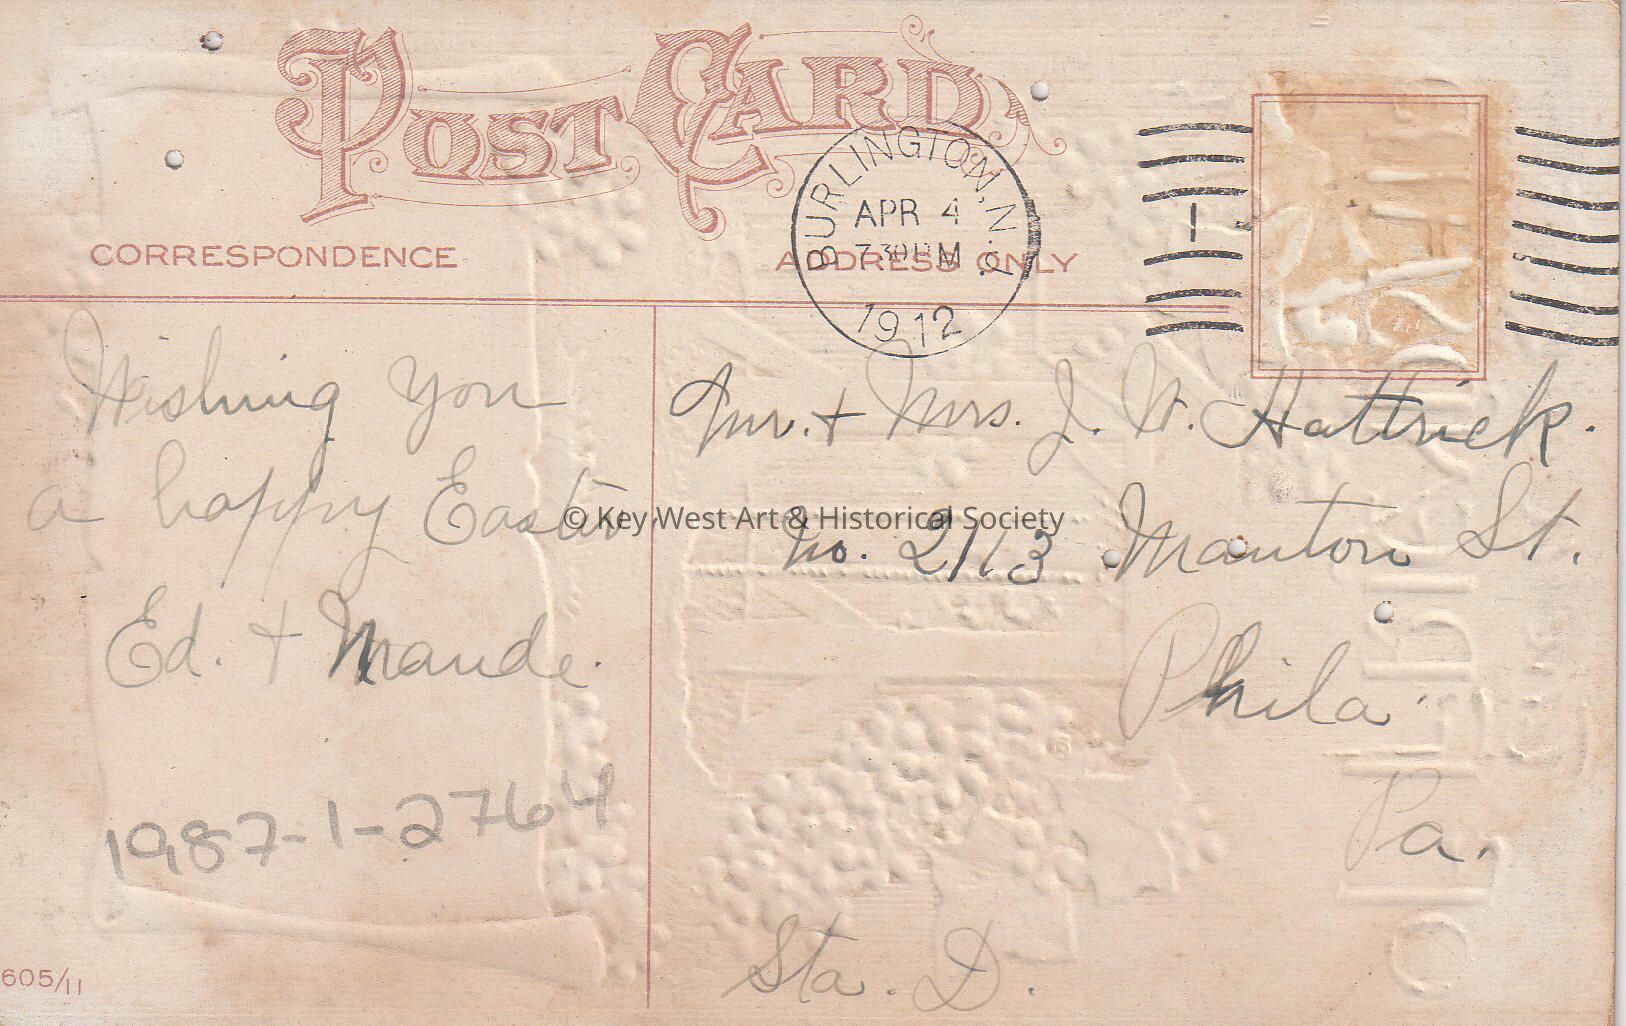 POST CARD
CORRESPONDENCE
ADDRESS ONLY
BURLINGTON, N.
APR 4
7 30 PM
1912
1
Wishing you
a happy Easter
Ed. + Maude.
Mr. + Mrs. J. W. Hattrick.
No. 2113 Manton St.
Phila.
Pa.
Sta. D.
1987-1-2764
605/11
© Key West Art & Historical Society